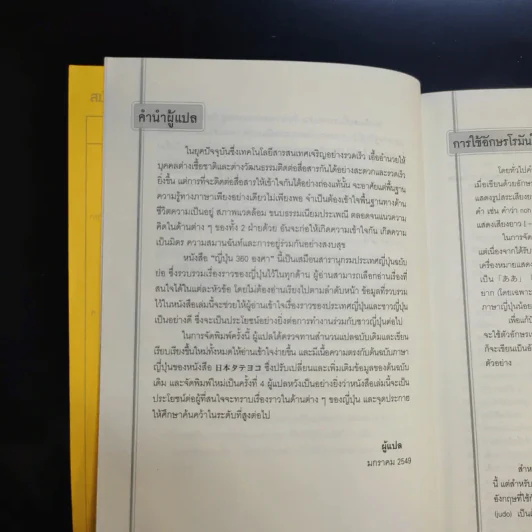 คำนำผู้แปล
ในยุคปัจจุบันซึ่งเทคโนโลยีสารสนเทศเจริญอย่างรวดเร็ว เอื้ออำนวยให้
บุคคลต่างเชื้อชาติและต่างวัฒนธรรมติดต่อสื่อสารกันได้อย่างสะดวกและรวดเร็ว
ยิ่งขึ้น แต่การที่จะติดต่อสื่อสารให้เข้าใจกันได้อย่างถ่องแท้นั้น จะอาศัยแต่พื้นฐาน
ความรู้ทางภาษาเพียงอย่างเดียวไม่เพียงพอ จำเป็นต้องเข้าใจพื้นฐานทางด้าน
ชีวิตความเป็นอยู่ สภาพแวดล้อม ขนบธรรมเนียมประเพณี ตลอดจนแนวความ
คิดในด้านต่าง ๆ ของทั้ง 2 ฝ่ายด้วย อันจะก่อให้เกิดความเข้าใจกัน เกิดความ
เป็นมิตร ความสมานฉันท์และการอยู่ร่วมกันอย่างสงบสุข
หนังสือ "ญี่ปุ่น 360 องศา" นี้เป็นเสมือนสารานุกรมประเทศญี่ปุ่นฉบับ
ย่อ ซึ่งรวบรวมเรื่องราวของญี่ปุ่นไว้ในทุกด้าน ผู้อ่านสามารถเลือกอ่านเรื่องที่
สนใจได้ในแต่ละหัวข้อ โดยไม่ต้องอ่านเรียงไปตามลำดับหน้า ข้อมูลที่รวบรวม
ไว้ในหนังสือเล่มนี้จะช่วยให้ผู้อ่านเข้าใจเรื่องราวของประเทศญี่ปุ่นและชาวญี่ปุ่น
เป็นอย่างดี ซึ่งจะเป็นประโยชน์อย่างยิ่งต่อการทำงานร่วมกับชาวญี่ปุ่นต่อไป
ในการจัดพิมพ์ครั้งนี้ ผู้แปลได้ตรวจทานสำนวนแปลฉบับเดิมและเขียน
เรียบเรียงขึ้นใหม่ทั้งหมดให้อ่านเข้าใจง่ายขึ้น และมีเนื้อความตรงกับต้นฉบับภาษา
ญี่ปุ่นของหนังสือ 日本タテヨコ ซึ่งปรับเปลี่ยนและเพิ่มเติมข้อมูลของต้นฉบับ
เดิม และจัดพิมพ์ใหม่เป็นครั้งที่ 4 ผู้แปลหวังเป็นอย่างยิ่งว่าหนังสือเล่มนี้จะเป็น
ประโยชน์ต่อผู้ที่สนใจจะทราบเรื่องราวในด้านต่าง ๆ ของญี่ปุ่น และจุดประกาย
ให้ศึกษาค้นคว้าในระดับที่สูงต่อไป
ผู้แปล
มกราคม 2549
การใช้อักษรโรมัน
โดยทั่วไปคำ
เมื่อเขียนด้วยอักษร
แสดงรูปสระเสียงยา
คำ เช่น คำว่า noh
แสดงเสียงยาว
ในการจัด
แต่เนื่องจากได้รับ
เครื่องหมายแสดง
ยาก (โดยเฉพาะ
ภาษาญี่ปุ่นน้อย
เพื่อแก้ปั
จะใช้ตัวอักษรเ
ก็จะเขียนเป็นอั
ตัวอย่าง
สำห
นี้ แต่สำหรับ
อังกฤษที่ใช้กั
(judo) เป็นต้